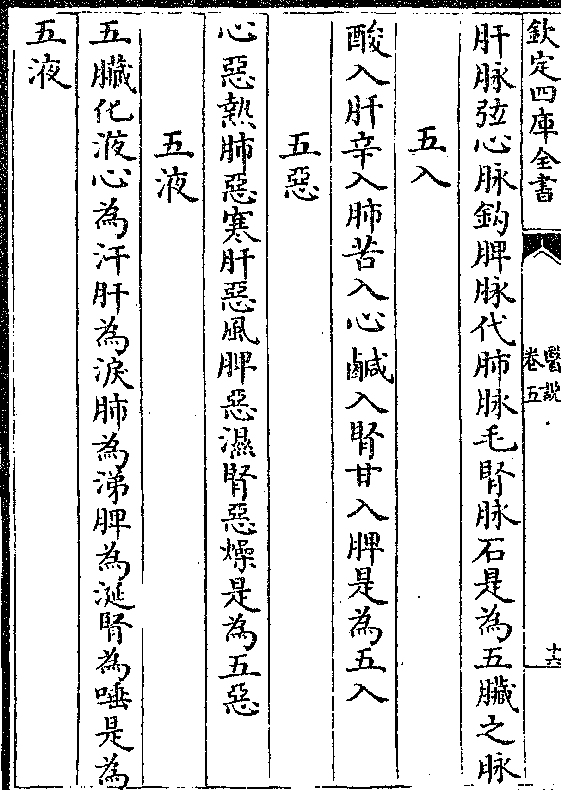 欽定四庫全書
醫說
卷五
十六
肝脉弦心脉鈎脾脉代肺脉毛腎脉石是為五臟之脉
五入
酸入肝辛入肺苦入心鹹入腎甘入脾是為五入
五惡
心惡熱肺惡寒肝惡風脾惡濕腎惡燥是為五惡
五液
五臟化液心為汗肝為淚肺為涕脾為涎腎為唾是為
五液